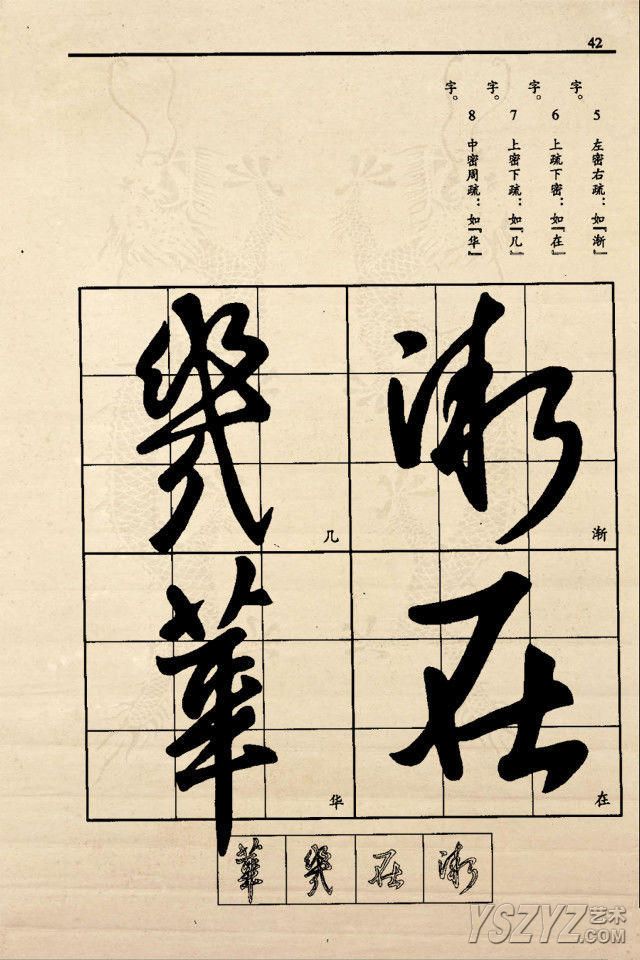 42
5 左密右疏：如『渐』
字。
6 上疏下密：如『在』
字。
7 上密下疏：如『几』
字。
8 中密周疏：如『华』
字。
漸
渐
在
在
幾
几
華
华
漸
在
幾
華
YSZYZ艺术
.COM